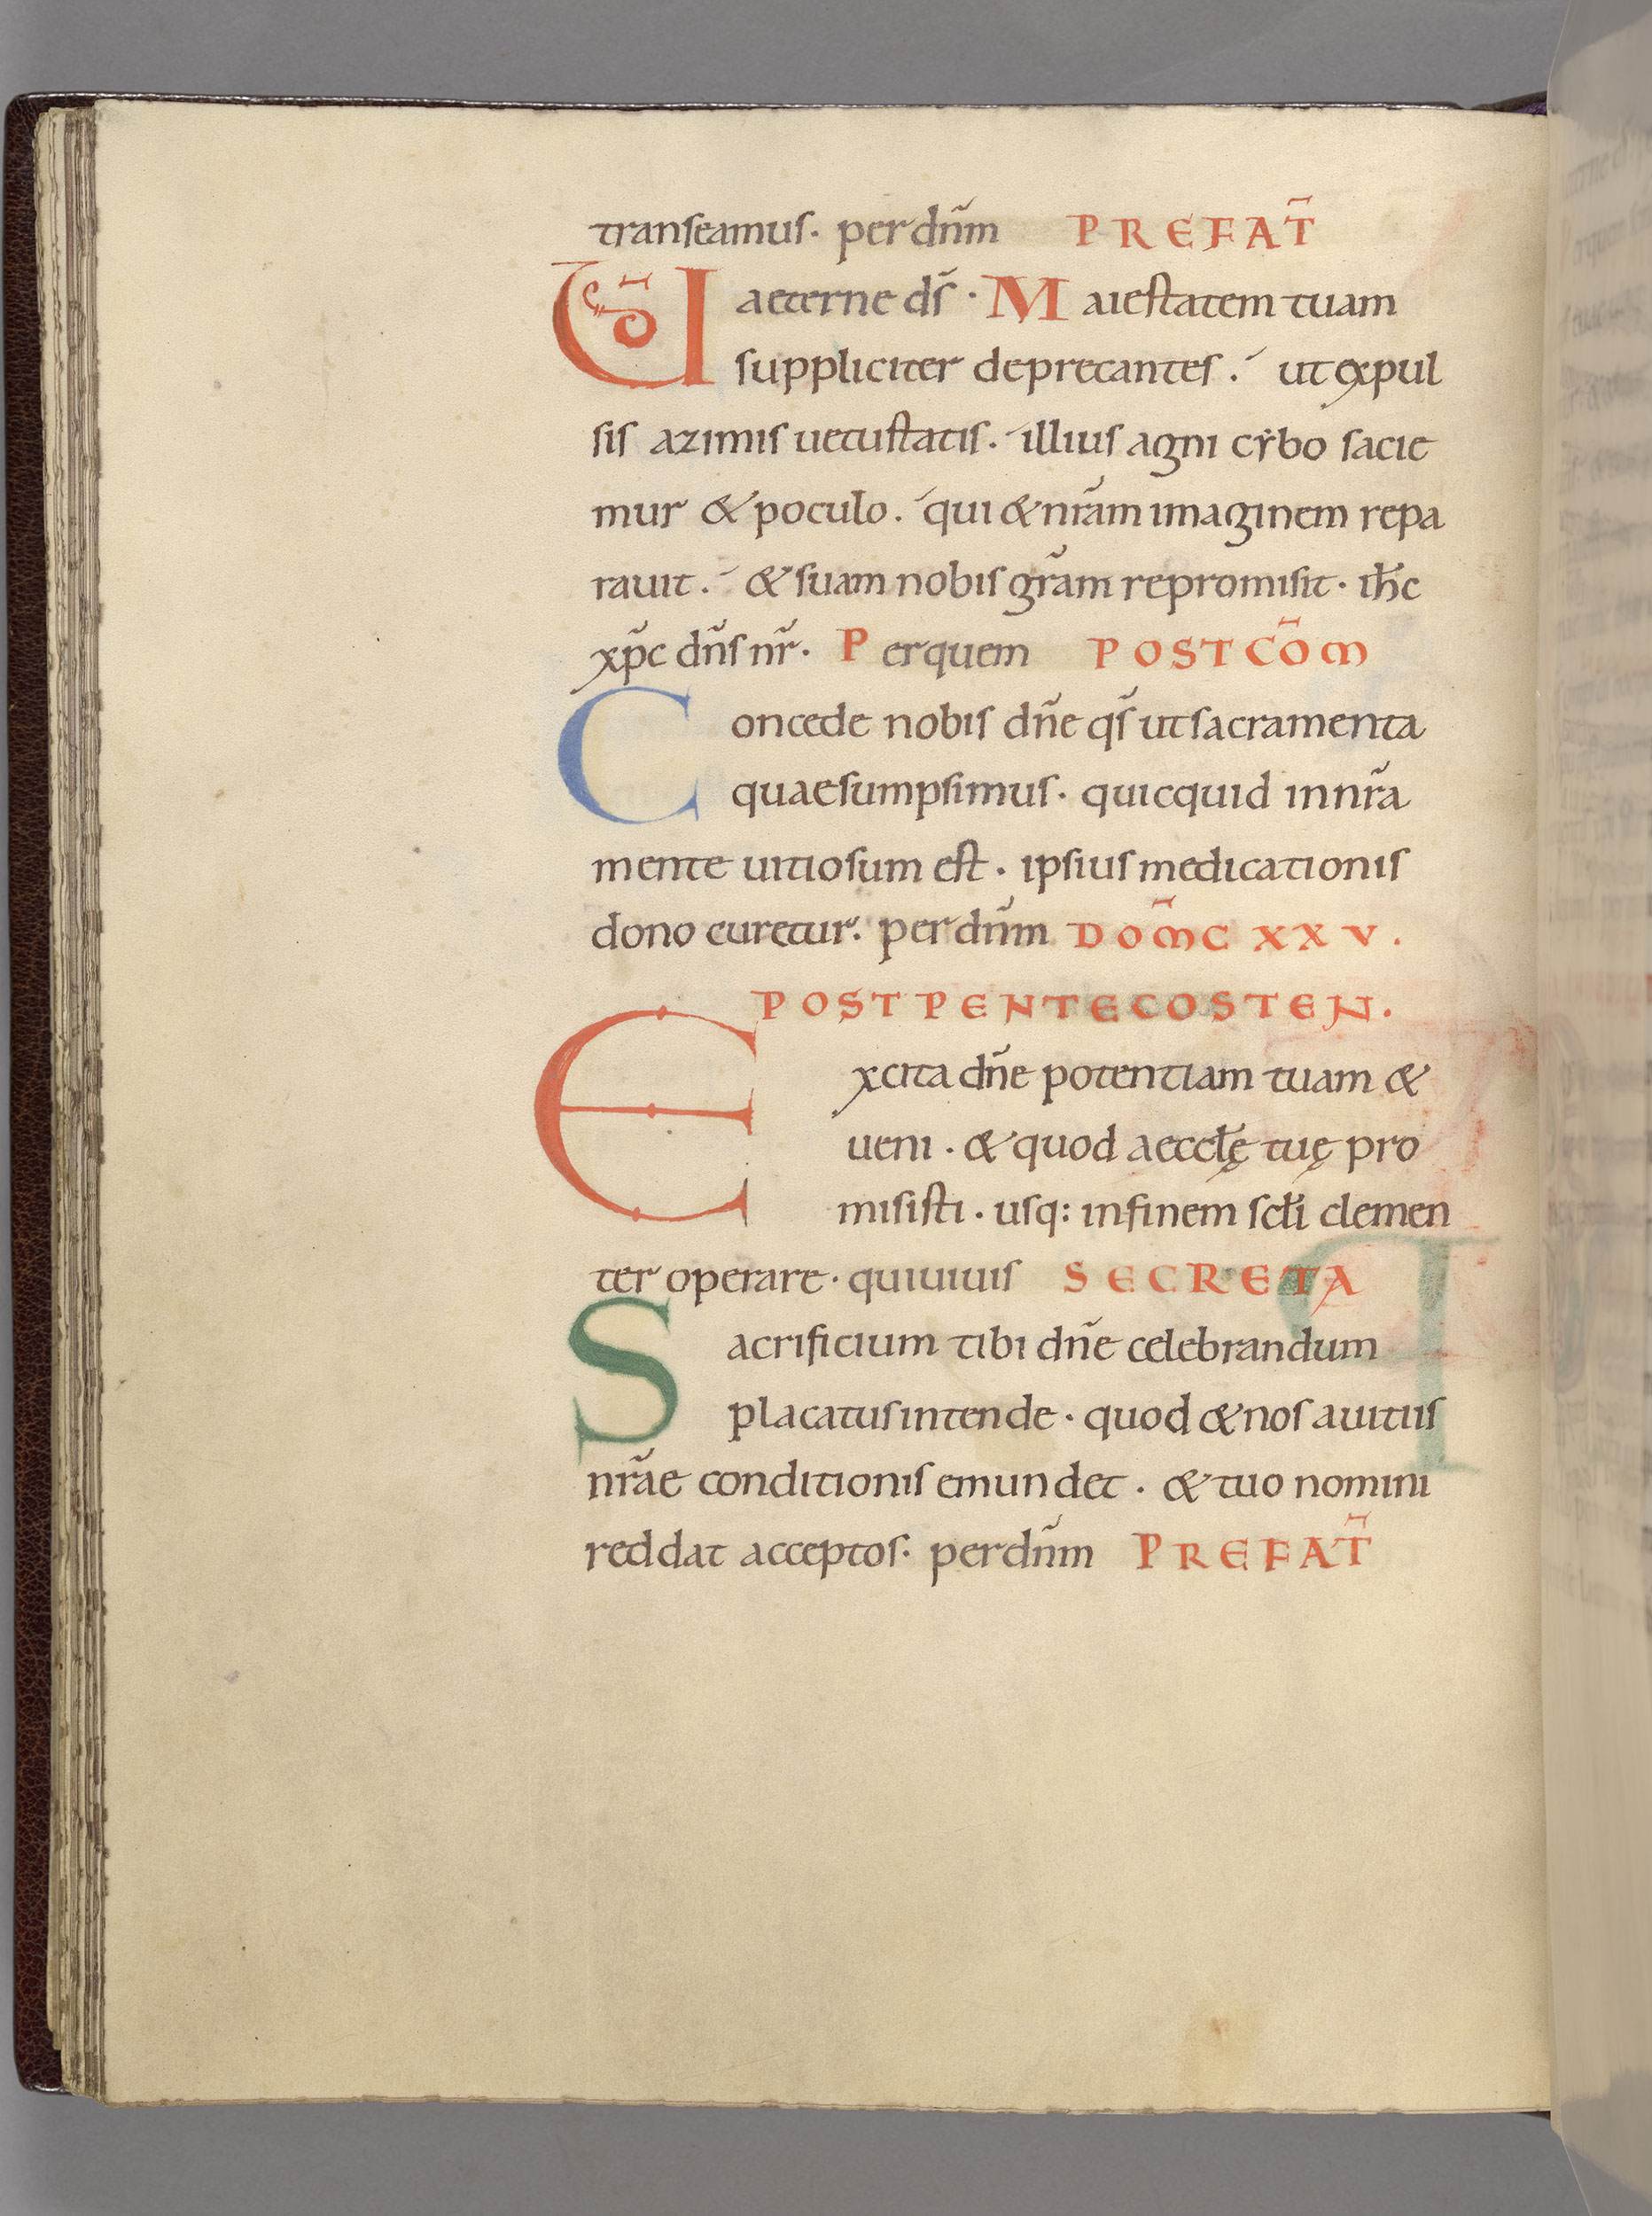 transeamus· per dn̄m PREFAT̄
VD̄ aeterne ds̄ · Maiestatem tuam
suppliciter deprecantes ·́ ut expul
sis azimis uetustatis ·́ illius agni cẏbo sacie
mur & poculo ·́ qui & nr̄am imaginem repa
rauit ·́ & suam nobis gr̄am repromisit · ih̄c
xp̄c dn̄s nr̄· Per quem POST CŌM
Concede nobis dn̄e qs̄ ut sacramenta
quae sumpsimus· quicquid in nr̄a
mente uitiosum est · ipsius medicationis
dono curetur· per dn̄m DOM̄C XXV·
POST PENTECOSTEN·
Excita dn̄e potentiam tuam &
ueni · & quod aeccłę tuę pro
misisti · usq: in finem scłi clemen
ter operare· qui uiuis SECRETA
Sacrificium tibi dn̄e celebrandum
placatus intende · quod & nos a uitiis
nr̄ae conditionis emundet · & tuo nomini
reddat acceptos· per dn̄m PREFAT̄